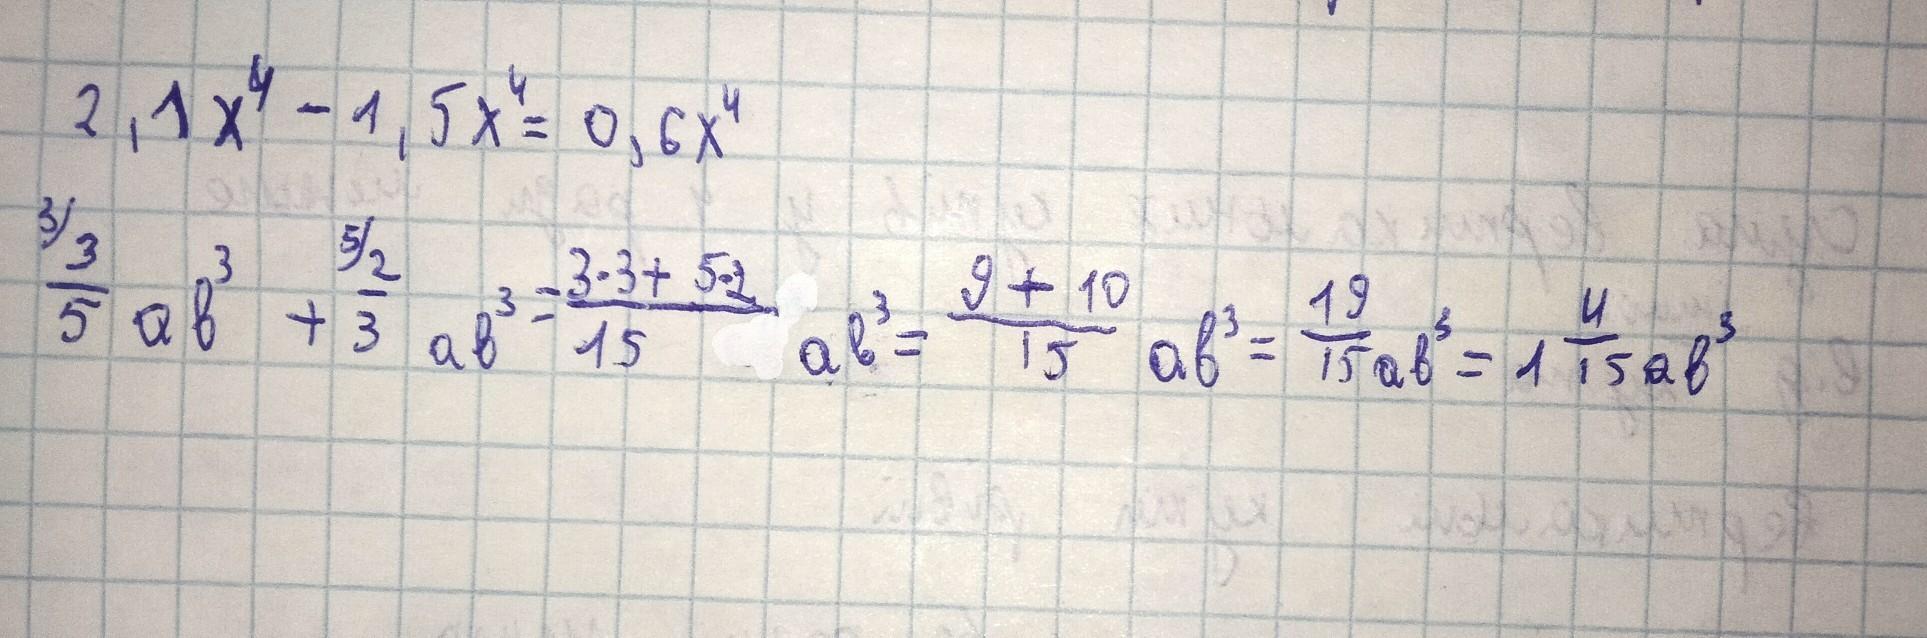 2,1x⁴ - 1,5x⁴ = 0,6x⁴
³⁄ 3/5 ab³ + ⁵⁄ 2/3 ab³ = (3·3 + 5·2)/15 ab³ = (9 + 10)/15 ab³ = 19/15 ab³ = 1 4/15 ab³